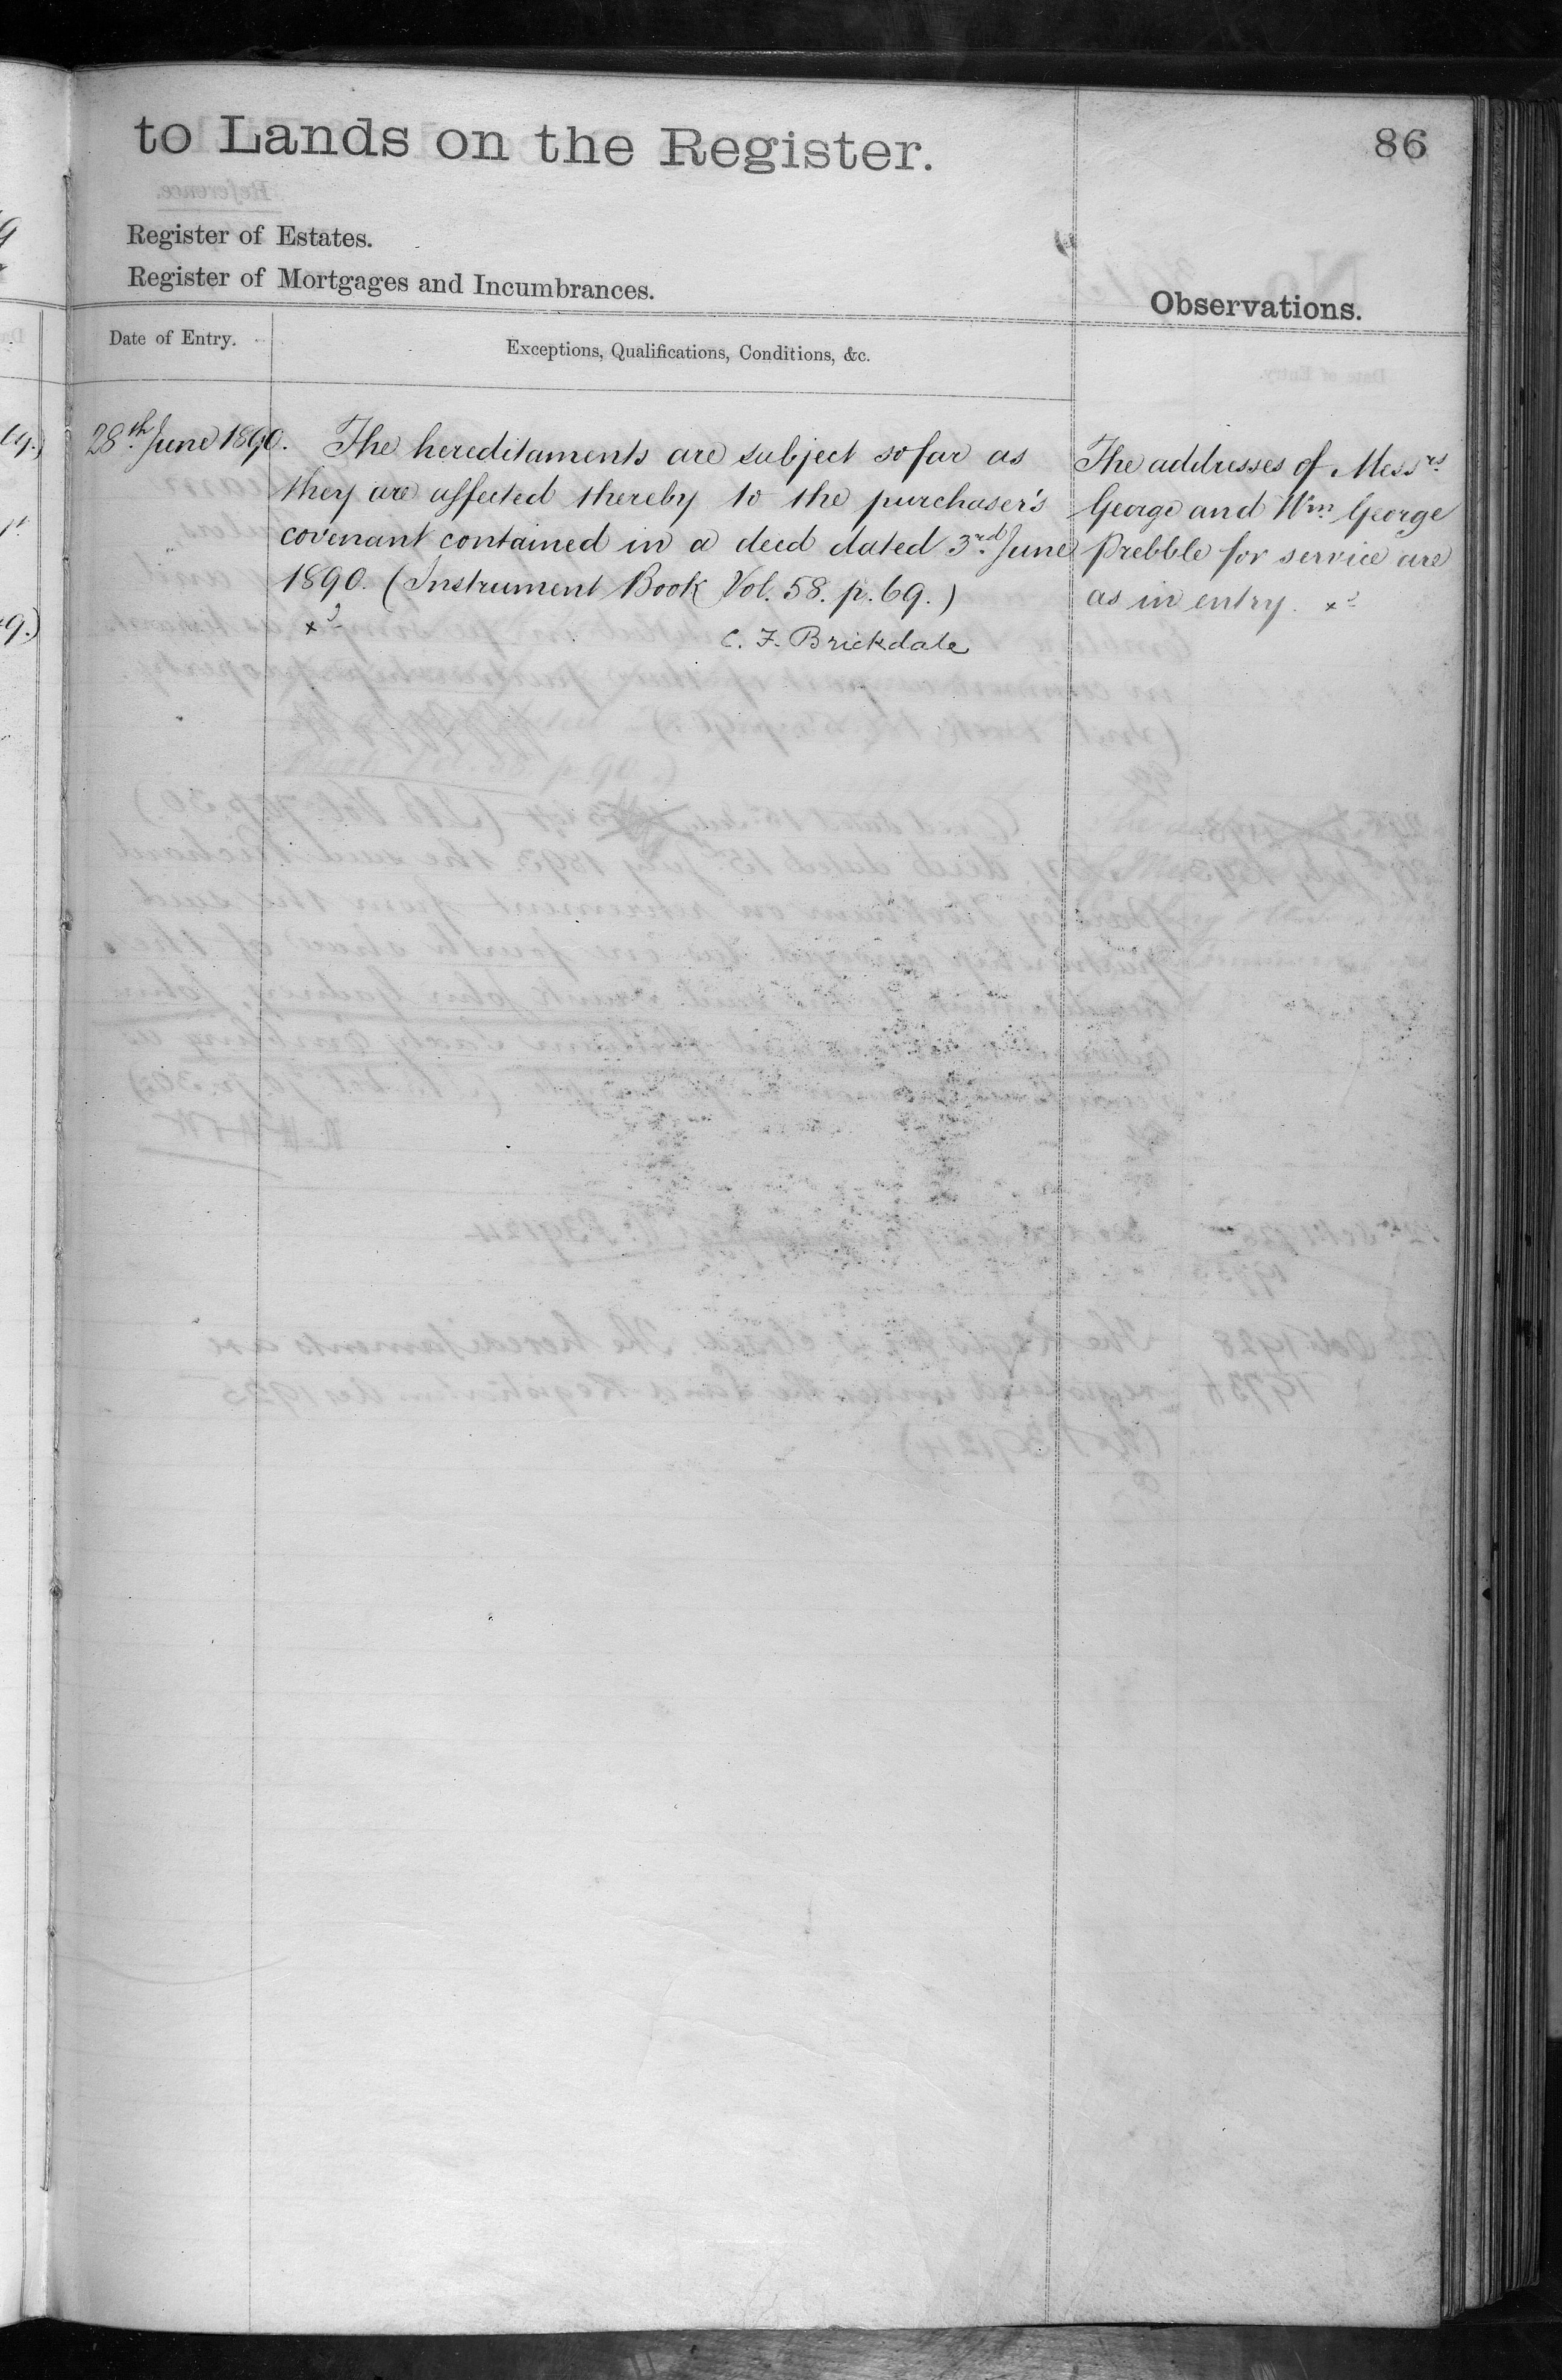 to Lands on the Register.
86
Register of Estates.
Register of Mortgages and Incumbrances.
Observations.
Date of Entry.
Exceptions, Qualifications, Conditions, &c.
28th June 1890.
The hereditaments are subject so far as
they are affected thereby to the purchaser's
covenant contained in a deed dated 3rd June
1890. (Instrument Book Vol. 58. p. 69.)
C. F. Brickdale
The addresses of Messrs
George and Wm George
Prebble for service are
as in entry.